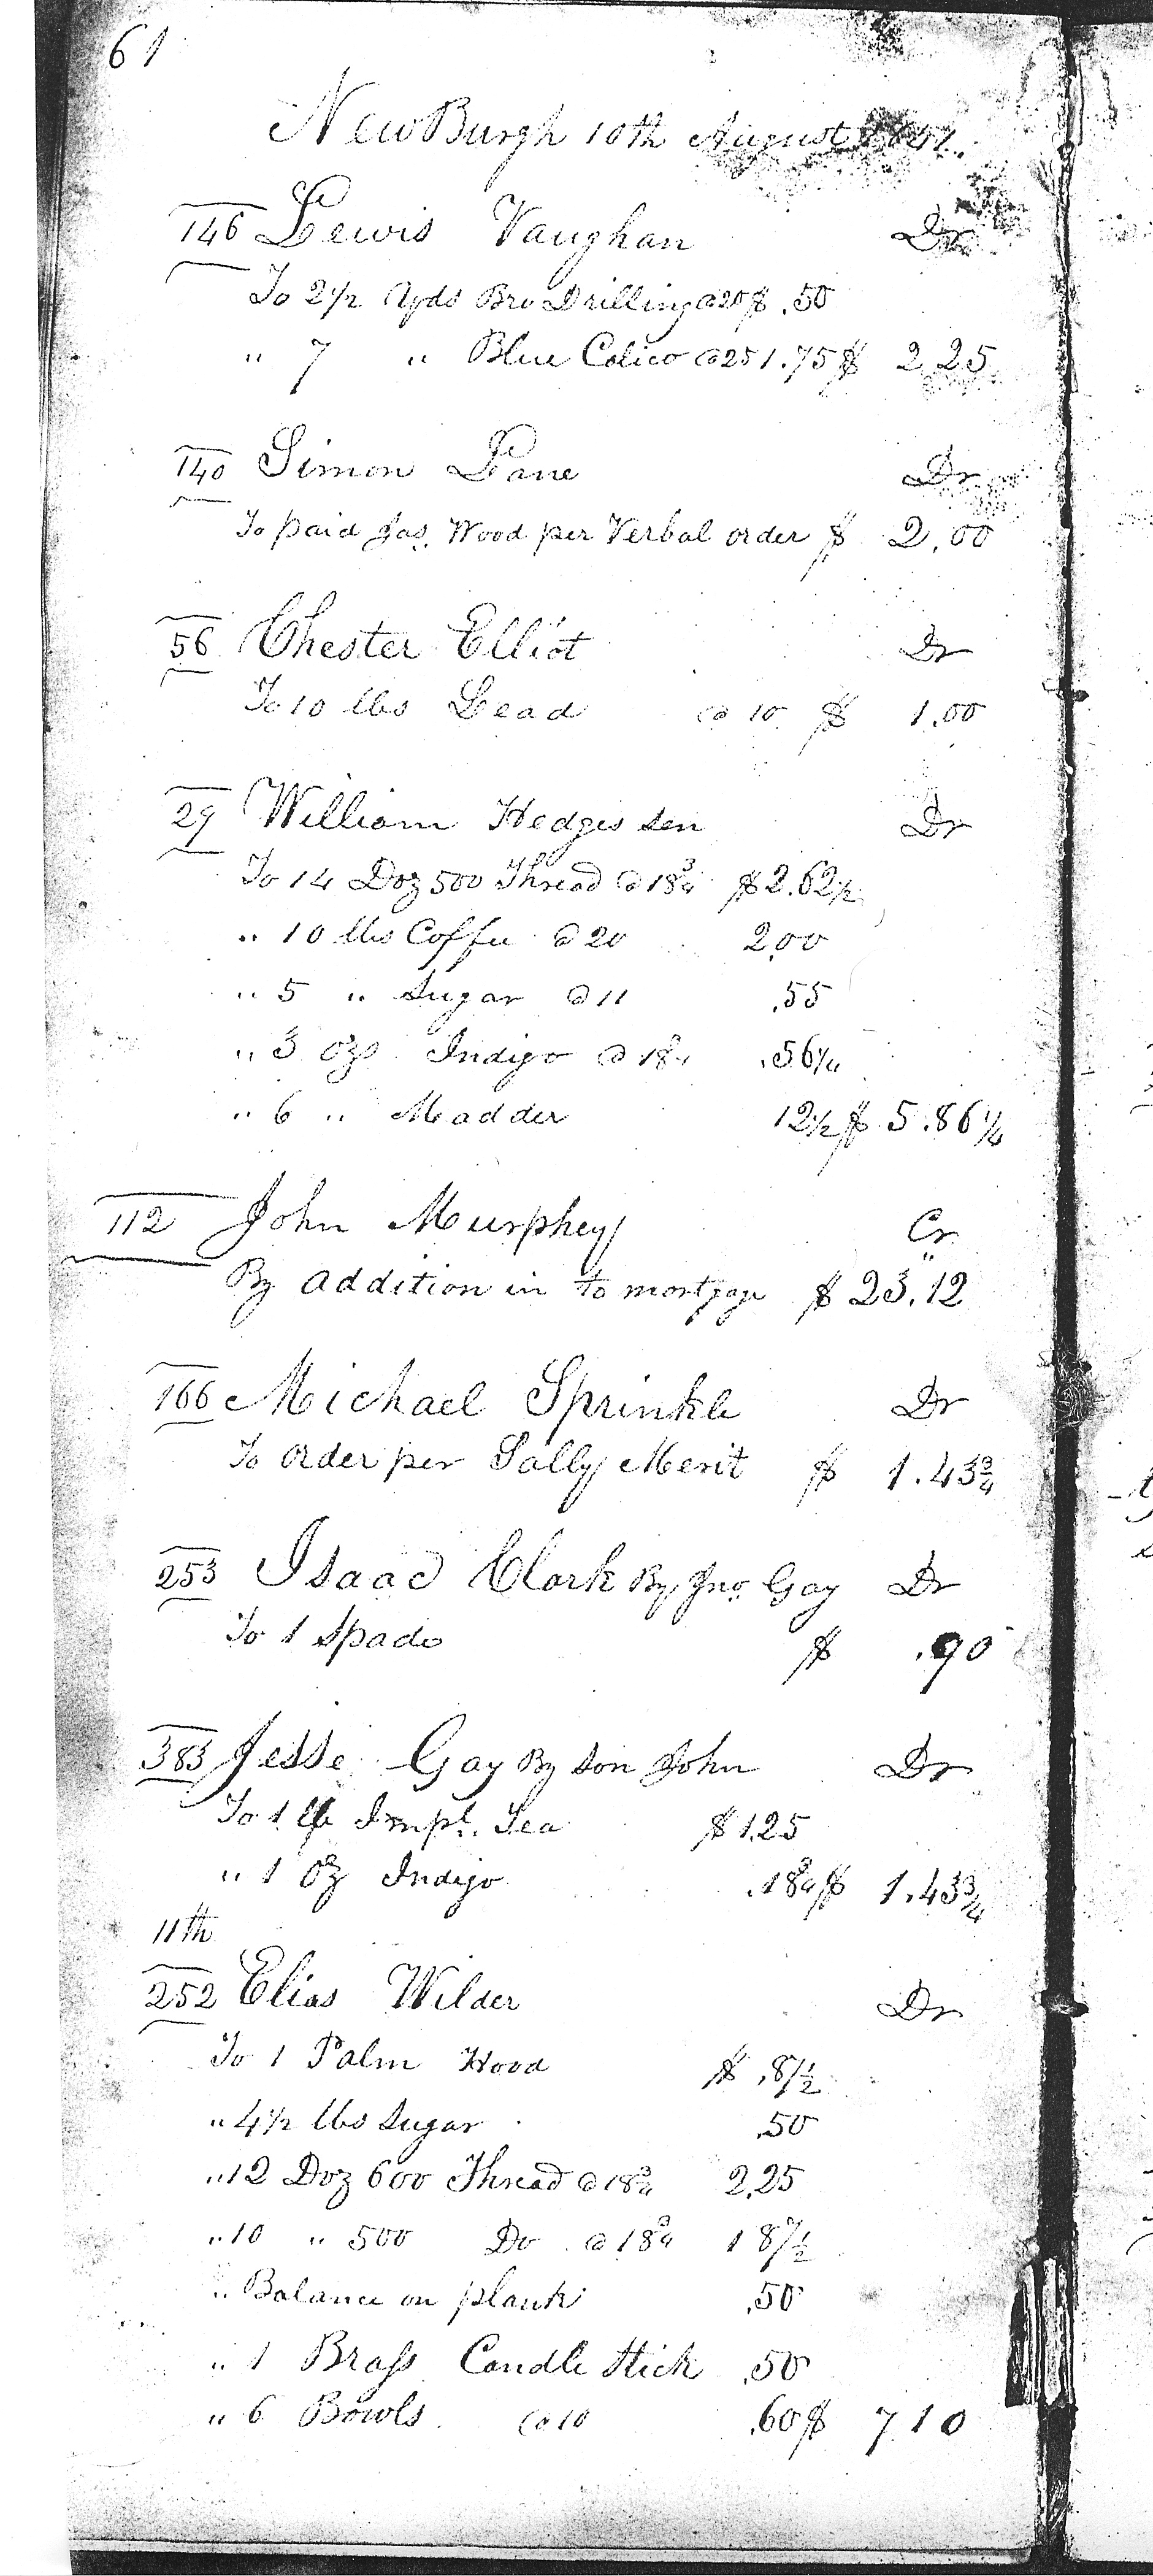 61
NewBurgh 10th August
146 Lewis Vaughan Dr
To 2 1/2 Yds Bro Drilling @20 $ .50
" 7 " Blue Calico @25 1.75 $ 2.25
140 Simon Lane Dr
To paid Jas. Wood per Verbal order $ 2.00
56 Chester Elliot Dr
To 10 lbs Lead @ 10 $ 1.00
29 William Hedges Sen Dr
To 14 Doz 500 Thread @ 18 3/4 $2.62 1/2
" 10 lbs Coffee @ 20 2.00
" 5 " Sugar @ 11 .55
" 3 Ozs Indigo @ 18 3/4 .56 1/4
" 6 " Madder 12 1/2 $ 5.86 1/4
112 John Murphey Cr
By addition in to mortgage $ 23.12
166 Michael Sprinkle Dr
To order per Sally Merit $ 1.43 3/4
253 Isaac Clark By Jno. Gay Dr
To 1 Spade $ .90
383 Jesse Gay By Son John Dr
To 1 lb Impl. Tea $1.25
" 1 Oz Indigo .18 3/4 $ 1.43 3/4
11th
252 Elias Wilder Dr
To 1 Palm Hood $ .87 1/2
" 4 1/2 lbs Sugar .50
" 12 Doz 600 Thread @ 18 3/4 2.25
" 10 " 500 Do @ 18 3/4 1 87 1/2
" Balance on plank .50
" 1 Brass Candle Stick .50
" 6 Bowls @ 10 .60 $ 7.10